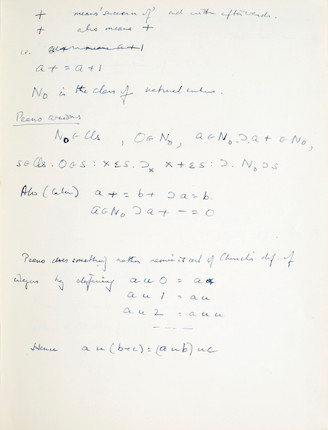 + means 'successor of' and written afterwards.
+ also means +
i.e. a+1
a+ = a+1
N₀ is the class of natural numbers.
Peano axioms
N₀ ∈ Cls , 0 ∈ N₀ , a ∈ N₀ .⊃. a+ ∈ N₀ ,
s ∈ Cls . 0 ∈ s : x ε s . ⊃ₓ x+ ε s : ⊃ . N₀ ⊃ s
Also (later) a+ = b+ ⊃ a = b.
a ∈ N₀ ⊃ a+ -= 0
Peano does something rather reminiscent of Church's def. of
integers by defining a u 0 = a
a u 1 = a u
a u 2 = a u u
Hence a u (b+c) = (a u b) u c